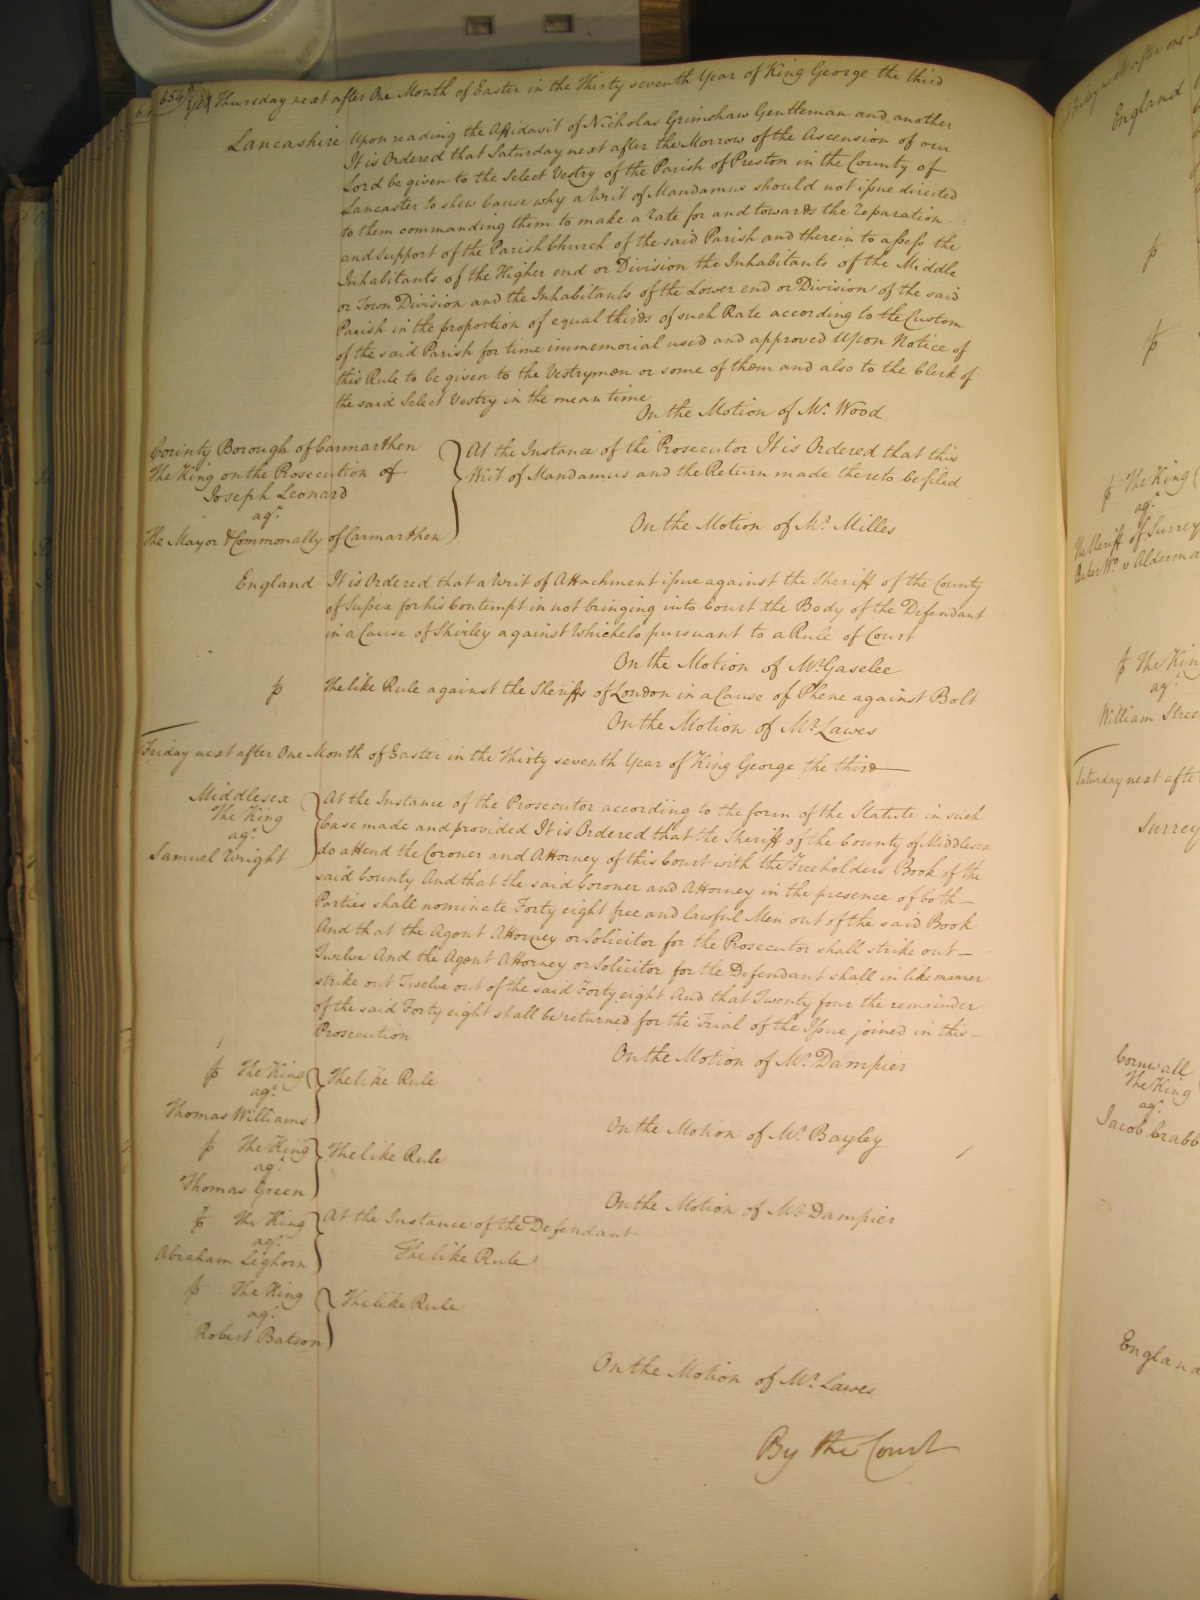 654
Thursday next after One Month of Easter in the Thirty seventh Year of King George the third
Lancashire Upon reading the Affidavit of Nicholas Grimshaw Gentleman and another
It is Ordered that Saturday next after the Morrow of the Ascension of our
Lord be given to the Select Vestry of the Parish of Preston in the County of
Lancaster to shew Cause why a Writ of Mandamus should not issue directed
to them commanding them to make a rate for and towards the Reparation
and support of the Parish Church of the said Parish and therein to assess the
Inhabitants of the Higher end or Division the Inhabitants of the Middle
or Town Division and the Inhabitants of the Lower end or Division of the said
Parish in the proportion of equal thirds of such Rate according to the Custom
of the said Parish for time immemorial used and approved Upon Notice of
this Rule to be given to the Vestrymen or some of them and also to the Clerk of
the said Select Vestry in the mean time
On the Motion of Mr. Wood
County Borough of Carmarthen
The King on the Prosecution of
Joseph Leonard
agt.
The Mayor & Commonalty of Carmarthen
At the Instance of the Prosecutor It is Ordered that this
Writ of Mandamus and the Return made thereto be filed
On the Motion of Mr. Milles
England It is Ordered that a Writ of Attachment issue against the Sheriff of the County
of Sussex for his Contempt in not bringing into Court the Body of the Defendant
in a Cause of Shirley against Whichelo pursuant to a Rule of Court
On the Motion of Mr. Gaselee
The like Rule against the Sheriffs of London in a Cause of Phene against Bolt
On the Motion of Mr. Lawes
Friday next after One Month of Easter in the Thirty seventh Year of King George the third
Middlesex
The King
agt.
Samuel Wright
At the Instance of the Prosecutor according to the form of the Statute in such
Case made and provided It is Ordered that the Sheriff of the County of Middlesex
do attend the Coroner and Attorney of this Court with the Freeholders Book of the
said County And that the said Coroner and Attorney in the presence of both
Parties shall nominate Forty eight free and lawful Men out of the said Book
And that the Agent Attorney or Solicitor for the Prosecutor shall strike out
Twelve And the Agent Attorney or Solicitor for the Defendant shall in like manner
strike out Twelve out of the said Forty eight And that Twenty four the remainder
of the said Forty eight shall be returned for the Trial of the Issue joined in this
Prosecution
On the Motion of Mr. Dampier
The King
agt.
Thomas Williams
The like Rule
On the Motion of Mr. Bayley
The King
agt.
Thomas Green
The like Rule
On the Motion of Mr. Dampier
The King
agt.
Abraham Leghorn
At the Instance of the Defendant
The like Rule
The King
agt.
Robert Batson
The like Rule
On the Motion of Mr. Lawes
By the Court
England
The King
agt.
The Sheriff of Surrey
The King
agt.
William Stree
Saturday next afte
Surrey
Cornwall
The King
agt.
Jacob Crabb
England